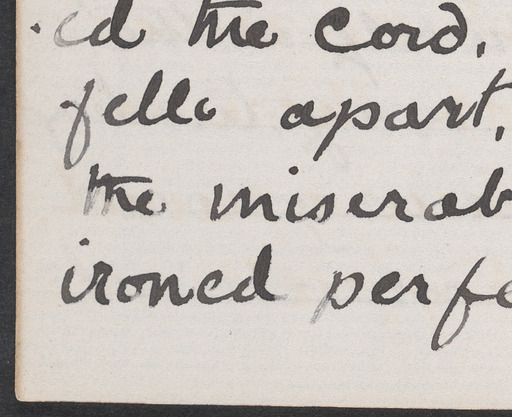 ed the cord,
fell apart,
the miserab
ironed perfe